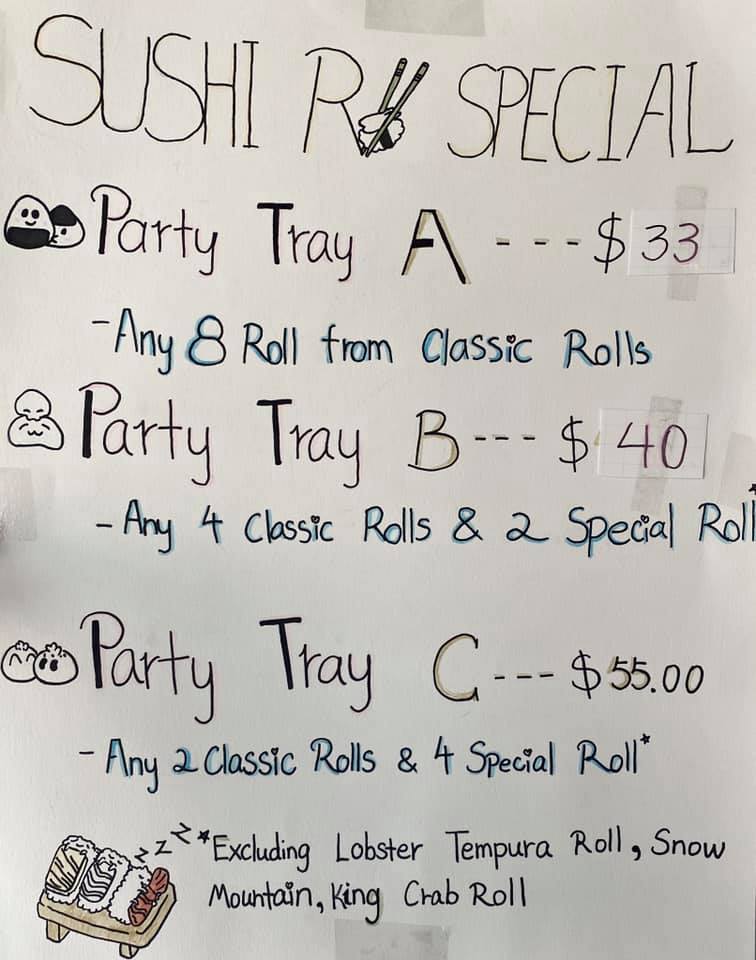 SUSHI R SPECIAL
Party Tray A --- $33
-Any 8 Roll from Classic Rolls
Party Tray B --- $ 40
- Any 4 Classic Rolls & 2 Special Roll*
Party Tray C --- $55.00
- Any 2 Classic Rolls & 4 Special Roll*
z z z *Excluding Lobster Tempura Roll, Snow
Mountain, King Crab Roll